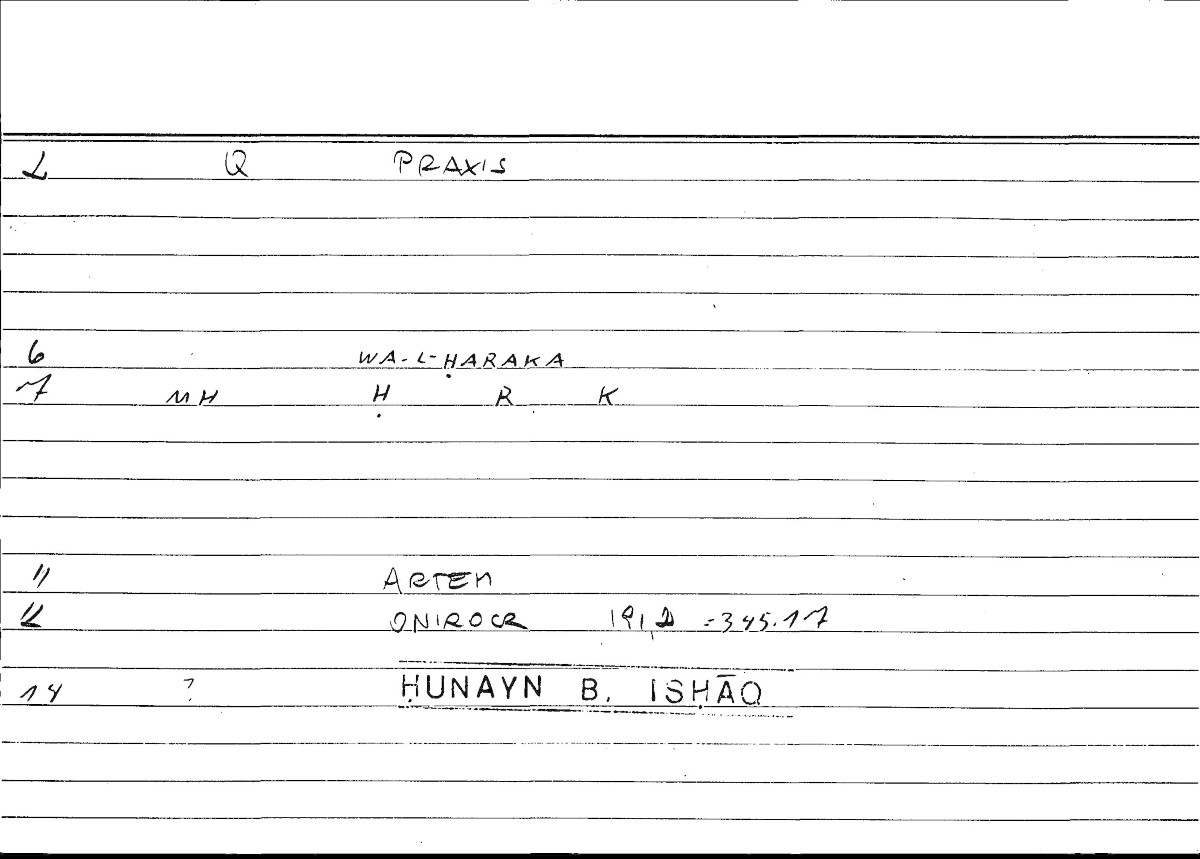 L Q PRAXIS
6 WA-L-ḤARAKA
7 MH Ḥ R K
11 ARTEM
12 ONIROCR 191,2 = 345.17
14 ? ḤUNAYN B. ISḤĀQ